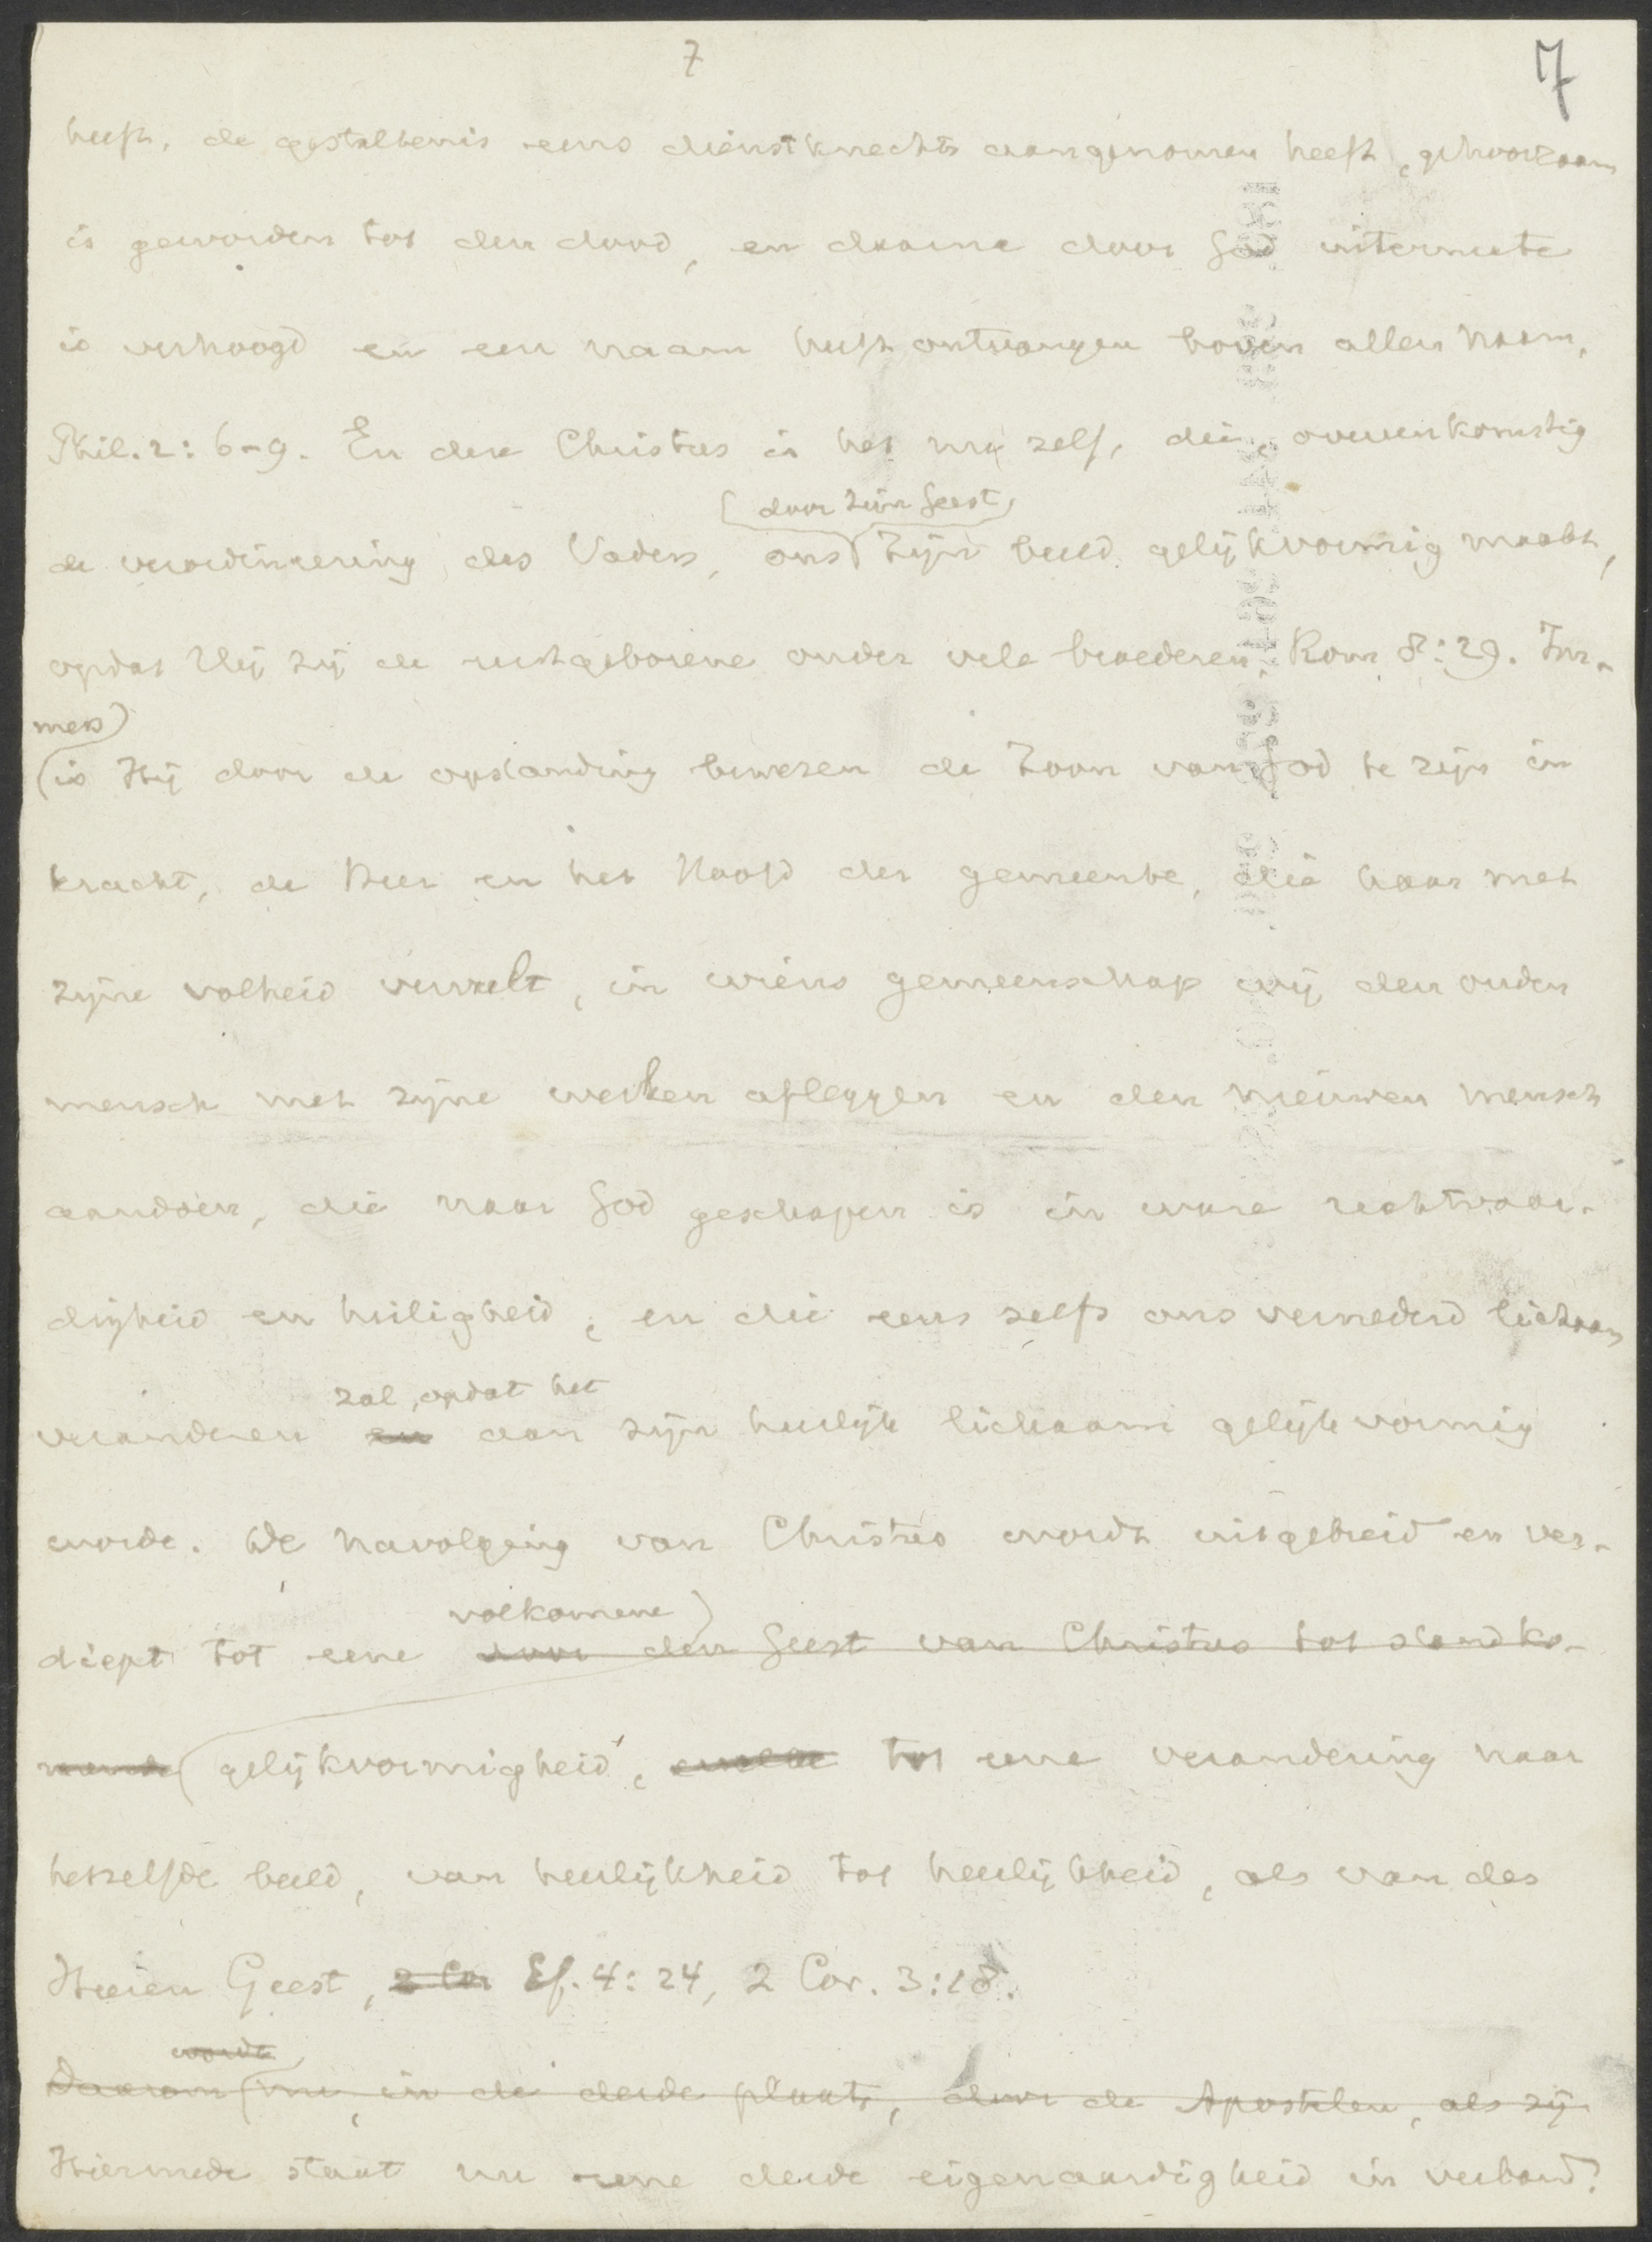 7 7
heeft, de gestaltenis eens dienstknechts aangenomen heeft, gehoorzaam
is geworden tot den dood, en daarna door God uitermate
is verhoogd en een naam heeft ontvangen boven allen naam,
Phil. 2: 6-9. En deze Christus is het nu zelf, die, overeenkomstig
(door Zijn Geest)
de verordineering des Vaders, ons Zijn beeld gelijkvormig maakt,
opdat Hij zij de eerstgeborene onder vele broederen, Rom 8:29. Im-
mers)
(is Hij door de opstanding bewezen de Zoon van God te zijn in
kracht, de Heer en het Hoofd der gemeente, die haar met
zijne volheid vervult, in wiens gemeenschap wij den ouden
mensch met zijne werken afleggen en den nieuwen mensch
aandoen, die naar God geschapen is in ware rechtvaar-
digheid en heiligheid; en die eens zelfs ons vernederd lichaam
zal, opdat het
veranderen en aan zijn heerlijk lichaam gelijkvormig
worde. De navolging van Christus wordt uitgebreid en ver-
volkomene)
diept tot eene door den Geest van Christus tot stand ko-
mende (gelijkvormigheid, tot eene verandering naar
hetzelfde beeld, van heerlijkheid tot heerlijkheid, als van des
Heeren Geest, 2 Cor Ef. 4: 24, 2 Cor. 3:18.
wordt
Daarom (nu, in de derde plaats, door de Apostelen, als zij
Hiermede staat nu eene derde eigenaardigheid in verband.